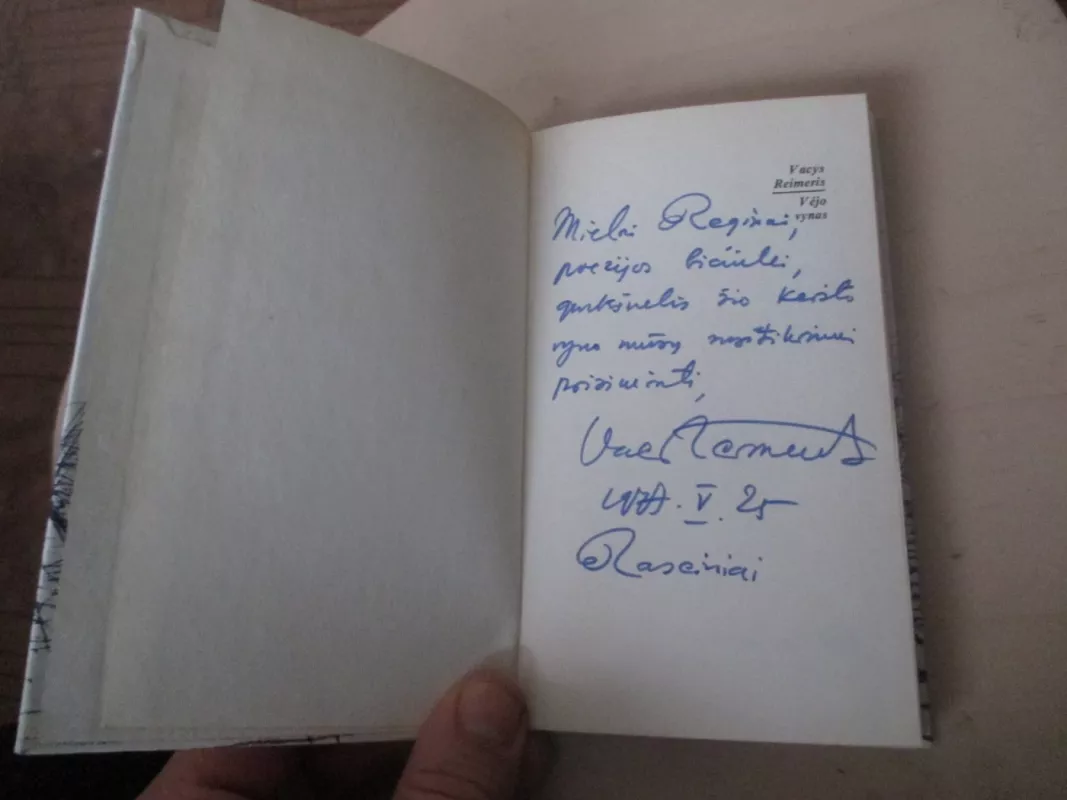 Vacys
Reimeris
Vėjo
vynas
Mielai Reginai,
poezijos bičiulei,
gurkšnelis šio karšto
vyno mūsų susitikimui
prisiminti,
V. 25
Raseiniai